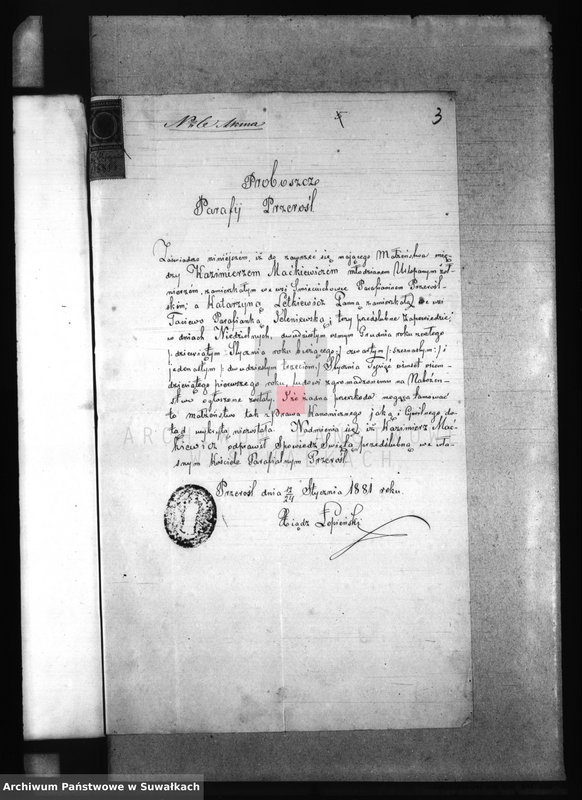 № 6 Akma
3
Proboszcz
Parafij Przerośl
Zaświadcza niniejszem, iż do zawrzeć się mającego Małżeństwa mię
dzy Kazimierzem Maćkiewiczem młodzianem Urlopanym żoł
nierzem, zamieszkałym we wsi Śmieciuchowie Parafianinem Przerośl
skim; a Katarzyną Letkiewicz Panną zamieszkałą we wsi
Taciewo Parafianką Jeleniewską; trzy przedślubne Zapowiedzie;
w dniach Niedzielnych, dwudziestym osmym Grudnia roku zeszłego
/: dziewiątym :/ Stycznia roku bieżącego; czwartym /: szesnastym :/ i
jedenastym /: dwudziestym trzecim :/ Stycznia Tysiąc ośmset ośm
dziesiątego pierwszego roku, ludowi zgromadzonemu na Nabożeń
stwo ogłoszone zostały. Iż żadna przeszkoda mogąca tamować
to małżeństwo tak z Prawa Kanonicznego jako i Cywilnego do
tąd wykrytą niezostała. Nadmienia się iż Kazimierz Mać
kiewicz odprawił Spowiedź Świętą przedślubną we wła
snym Kościele Parafialnym Przerośl.
Przerośl dnia 12/24 Stycznia 1881 roku.
Xiądz Łopieński
ARCH
ACH
Archiwum Państwowe w Suwałkach